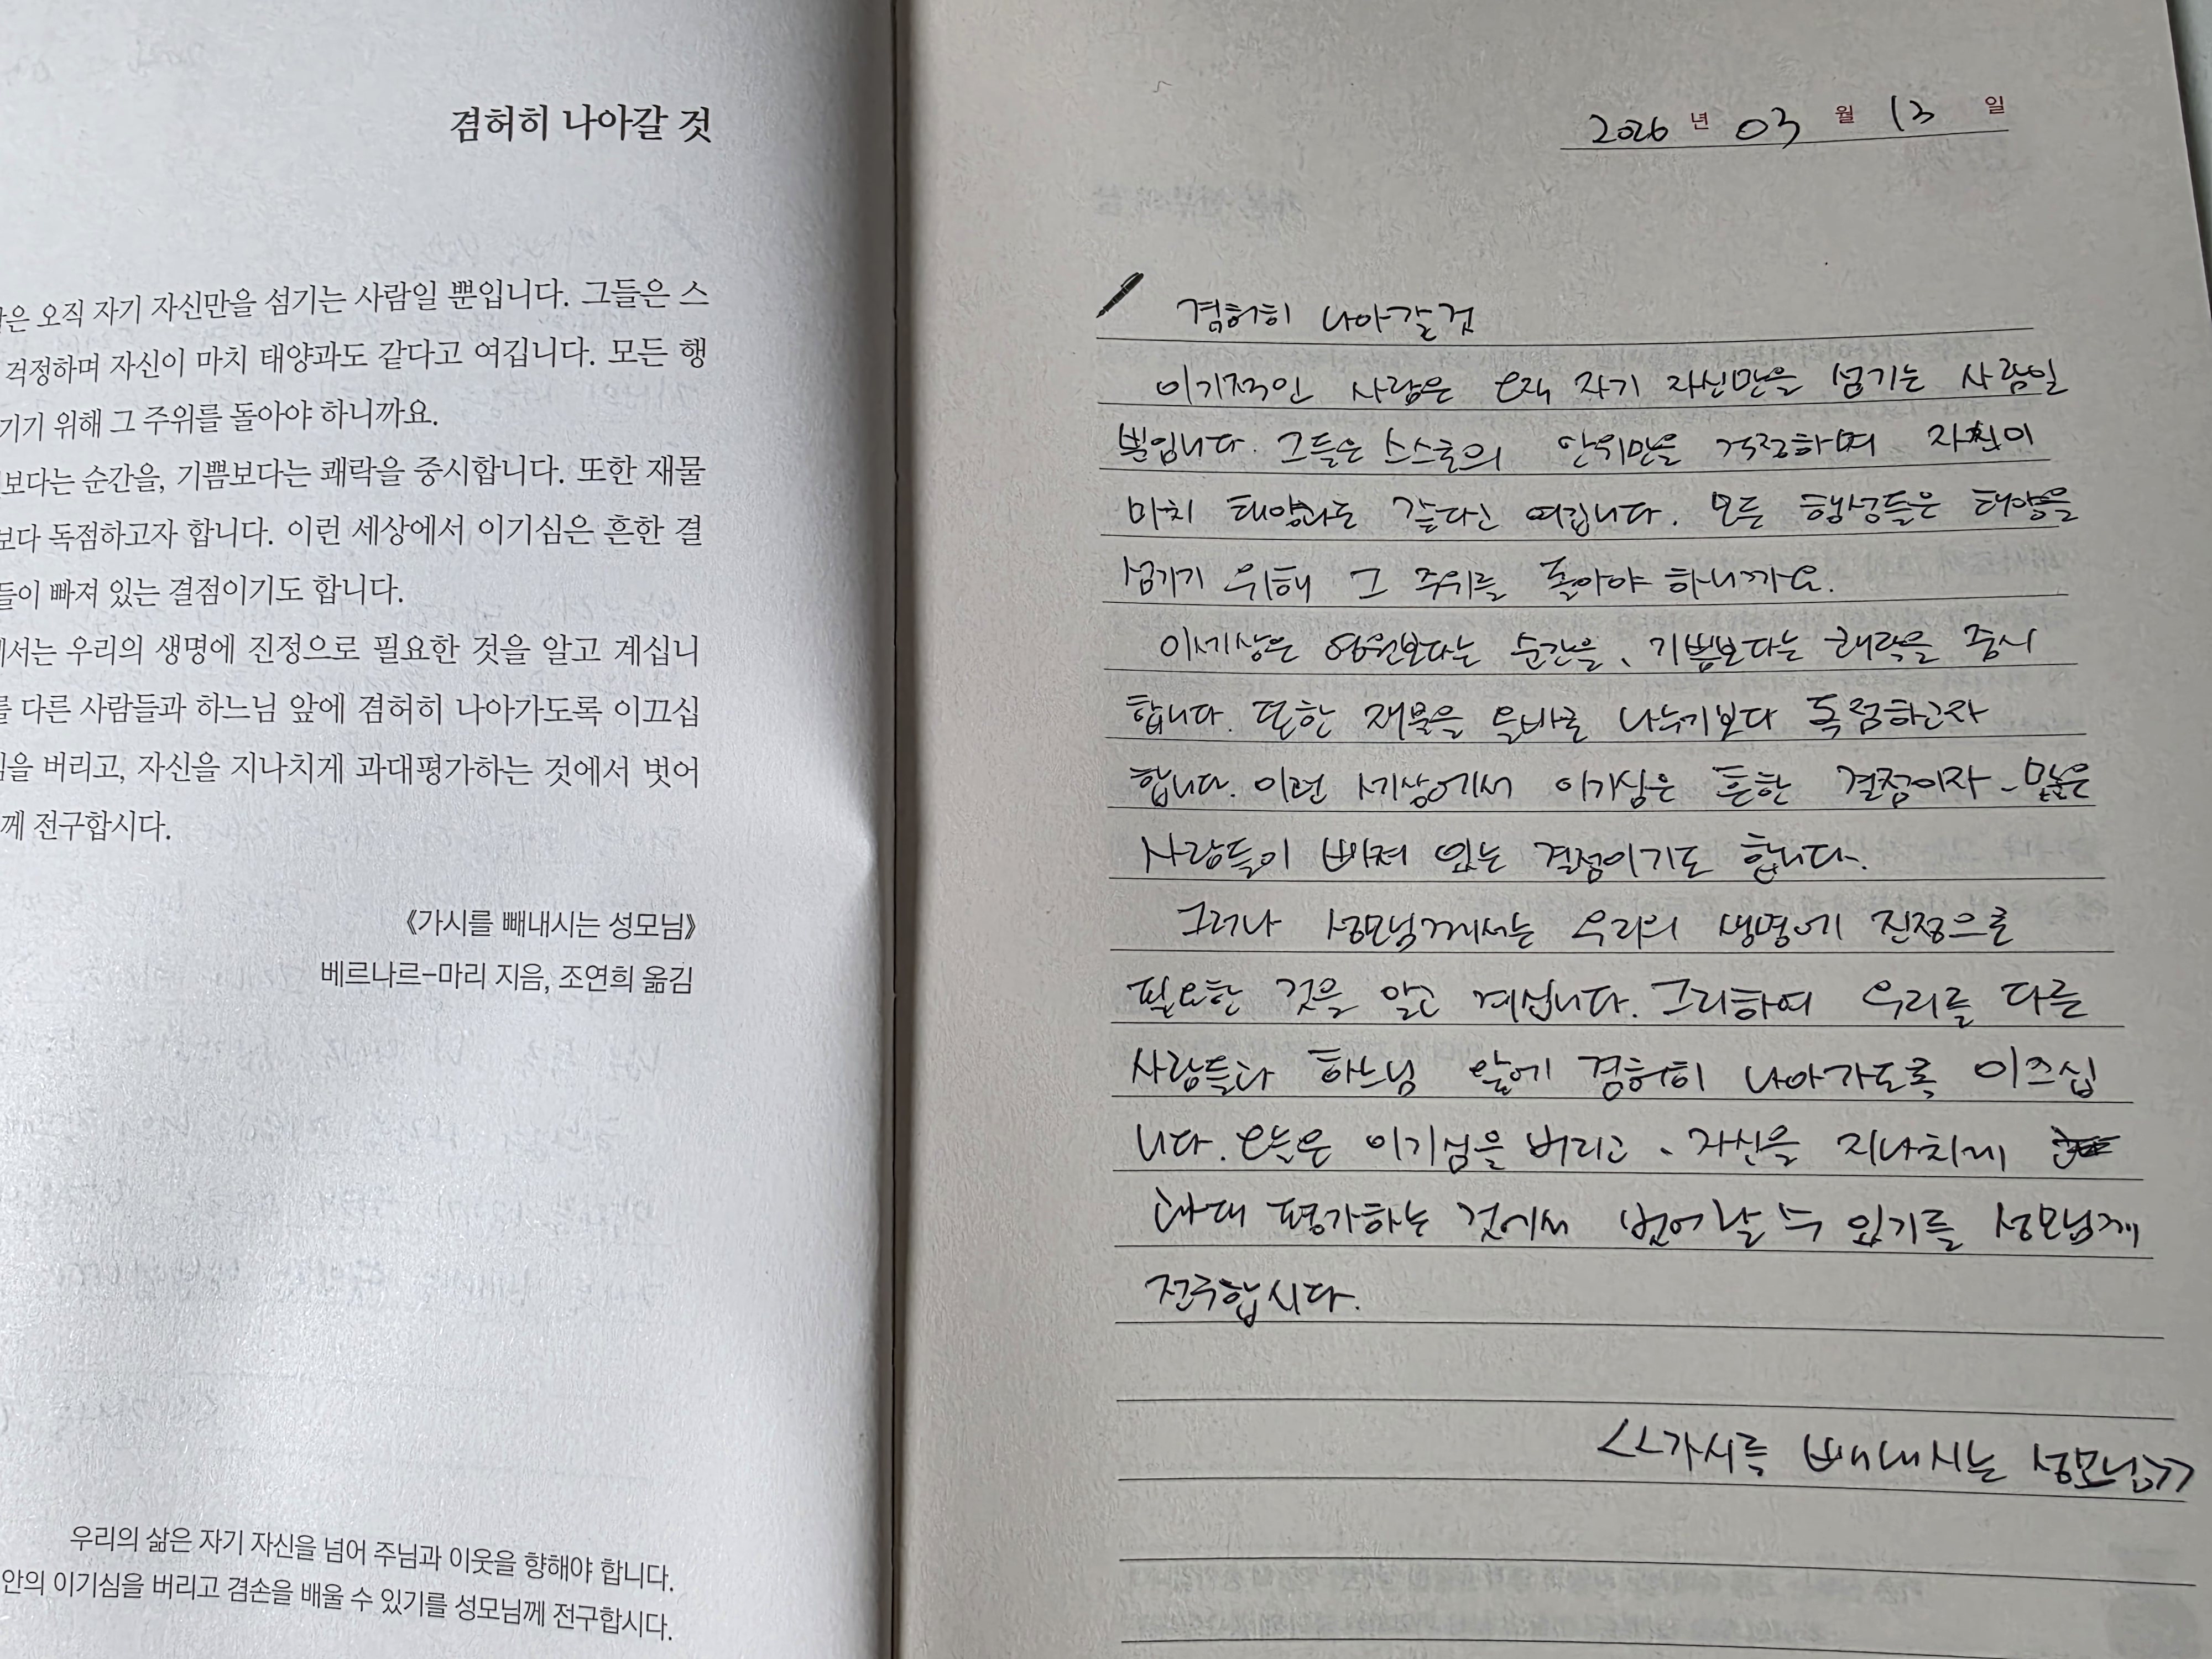 겸허히 나아갈 것
은 오직 자기 자신만을 섬기는 사람일 뿐입니다. 그들은 스
걱정하며 자신이 마치 태양과도 같다고 여깁니다. 모든 행
기기 위해 그 주위를 돌아야 하니까요.
보다는 순간을, 기쁨보다는 쾌락을 중시합니다. 또한 재물
보다 독점하고자 합니다. 이런 세상에서 이기심은 흔한 결
들이 빠져 있는 결점이기도 합니다.
서는 우리의 생명에 진정으로 필요한 것을 알고 계십니
를 다른 사람들과 하느님 앞에 겸허히 나아가도록 이끄십
을 버리고, 자신을 지나치게 과대평가하는 것에서 벗어
께 전구합시다.
《가시를 빼내시는 성모님》
베르나르-마리 지음, 조연희 옮김
우리의 삶은 자기 자신을 넘어 주님과 이웃을 향해야 합니다.
안의 이기심을 버리고 겸손을 배울 수 있기를 성모님께 전구합시다.
2026 년 03 월 13 일
겸허히 나아갈 것
이기적인 사람은 오직 자기 자신만을 섬기는 사람일
뿐입니다. 그들은 스스로의 안위만을 걱정하며 자신이
마치 태양과도 같다고 여깁니다. 모든 행성들은 태양을
섬기기 위해 그 주위를 돌아야 하니까요.
이 세상은 영원보다는 순간을, 기쁨보다는 쾌락을 중시
합니다. 또한 재물을 올바로 나누기보다 독점하고자
합니다. 이런 세상에서 이기심은 흔한 결점이자, 많은
사람들이 빠져 있는 결점이기도 합니다.
그러나 성모님께서는 우리의 생명에 진정으로
필요한 것을 알고 계십니다. 그리하여 우리를 다른
사람들과 하느님 앞에 겸허히 나아가도록 이끄십
니다. 오늘은 이기심을 버리고, 자신을 지나치게
과대 평가하는 것에서 벗어날 수 있기를 성모님께
전구합시다.
<<가시를 빼내시는 성모님>>